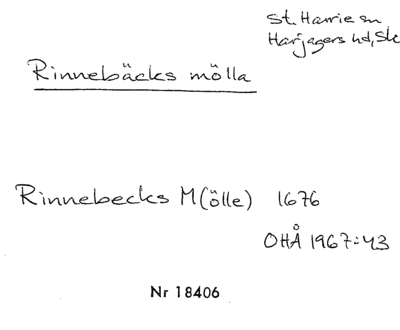 St. Harrie sn
Harjagers hd, Sk
Rinnebäcks mölla
Rinnebecks M(ölle) 1676
OHÅ 1967:43
Nr 18406